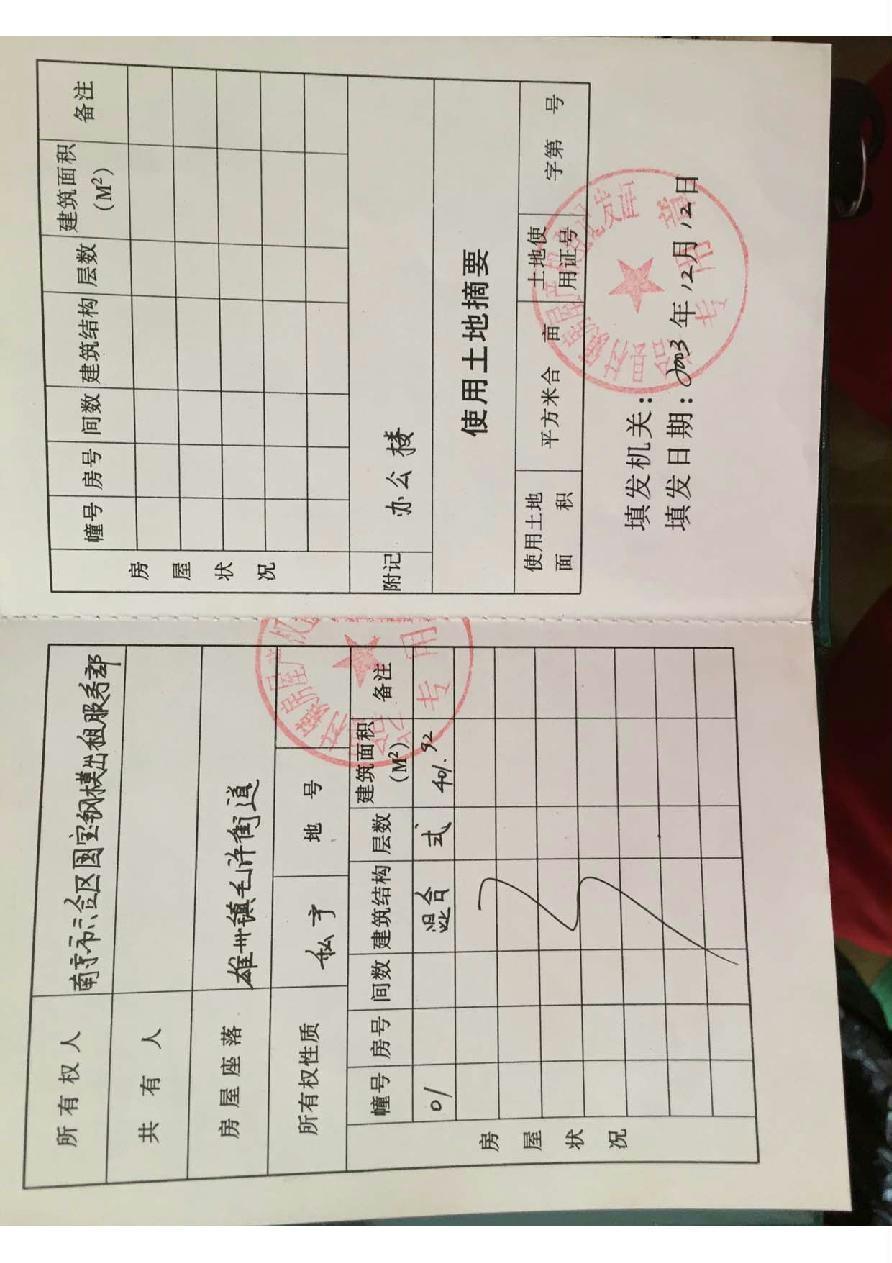 所有权人 南京市六合区国宝钢模出租服务部
共有人
房屋座落 雄州镇毛许街道
所有权性质 私产 地号
幢号 房号 间数 建筑结构 层数 建筑面积(M²) 备注
01 混合 弍 401.92
房屋状况
幢号 房号 间数 建筑结构 层数 建筑面积(M²) 备注
房屋状况
附记 办公楼
使用土地摘要
使用土地面积 平方米合 亩 土地使用证号 字第 号
填发机关:
填发日期:2003年12月12日
专用章